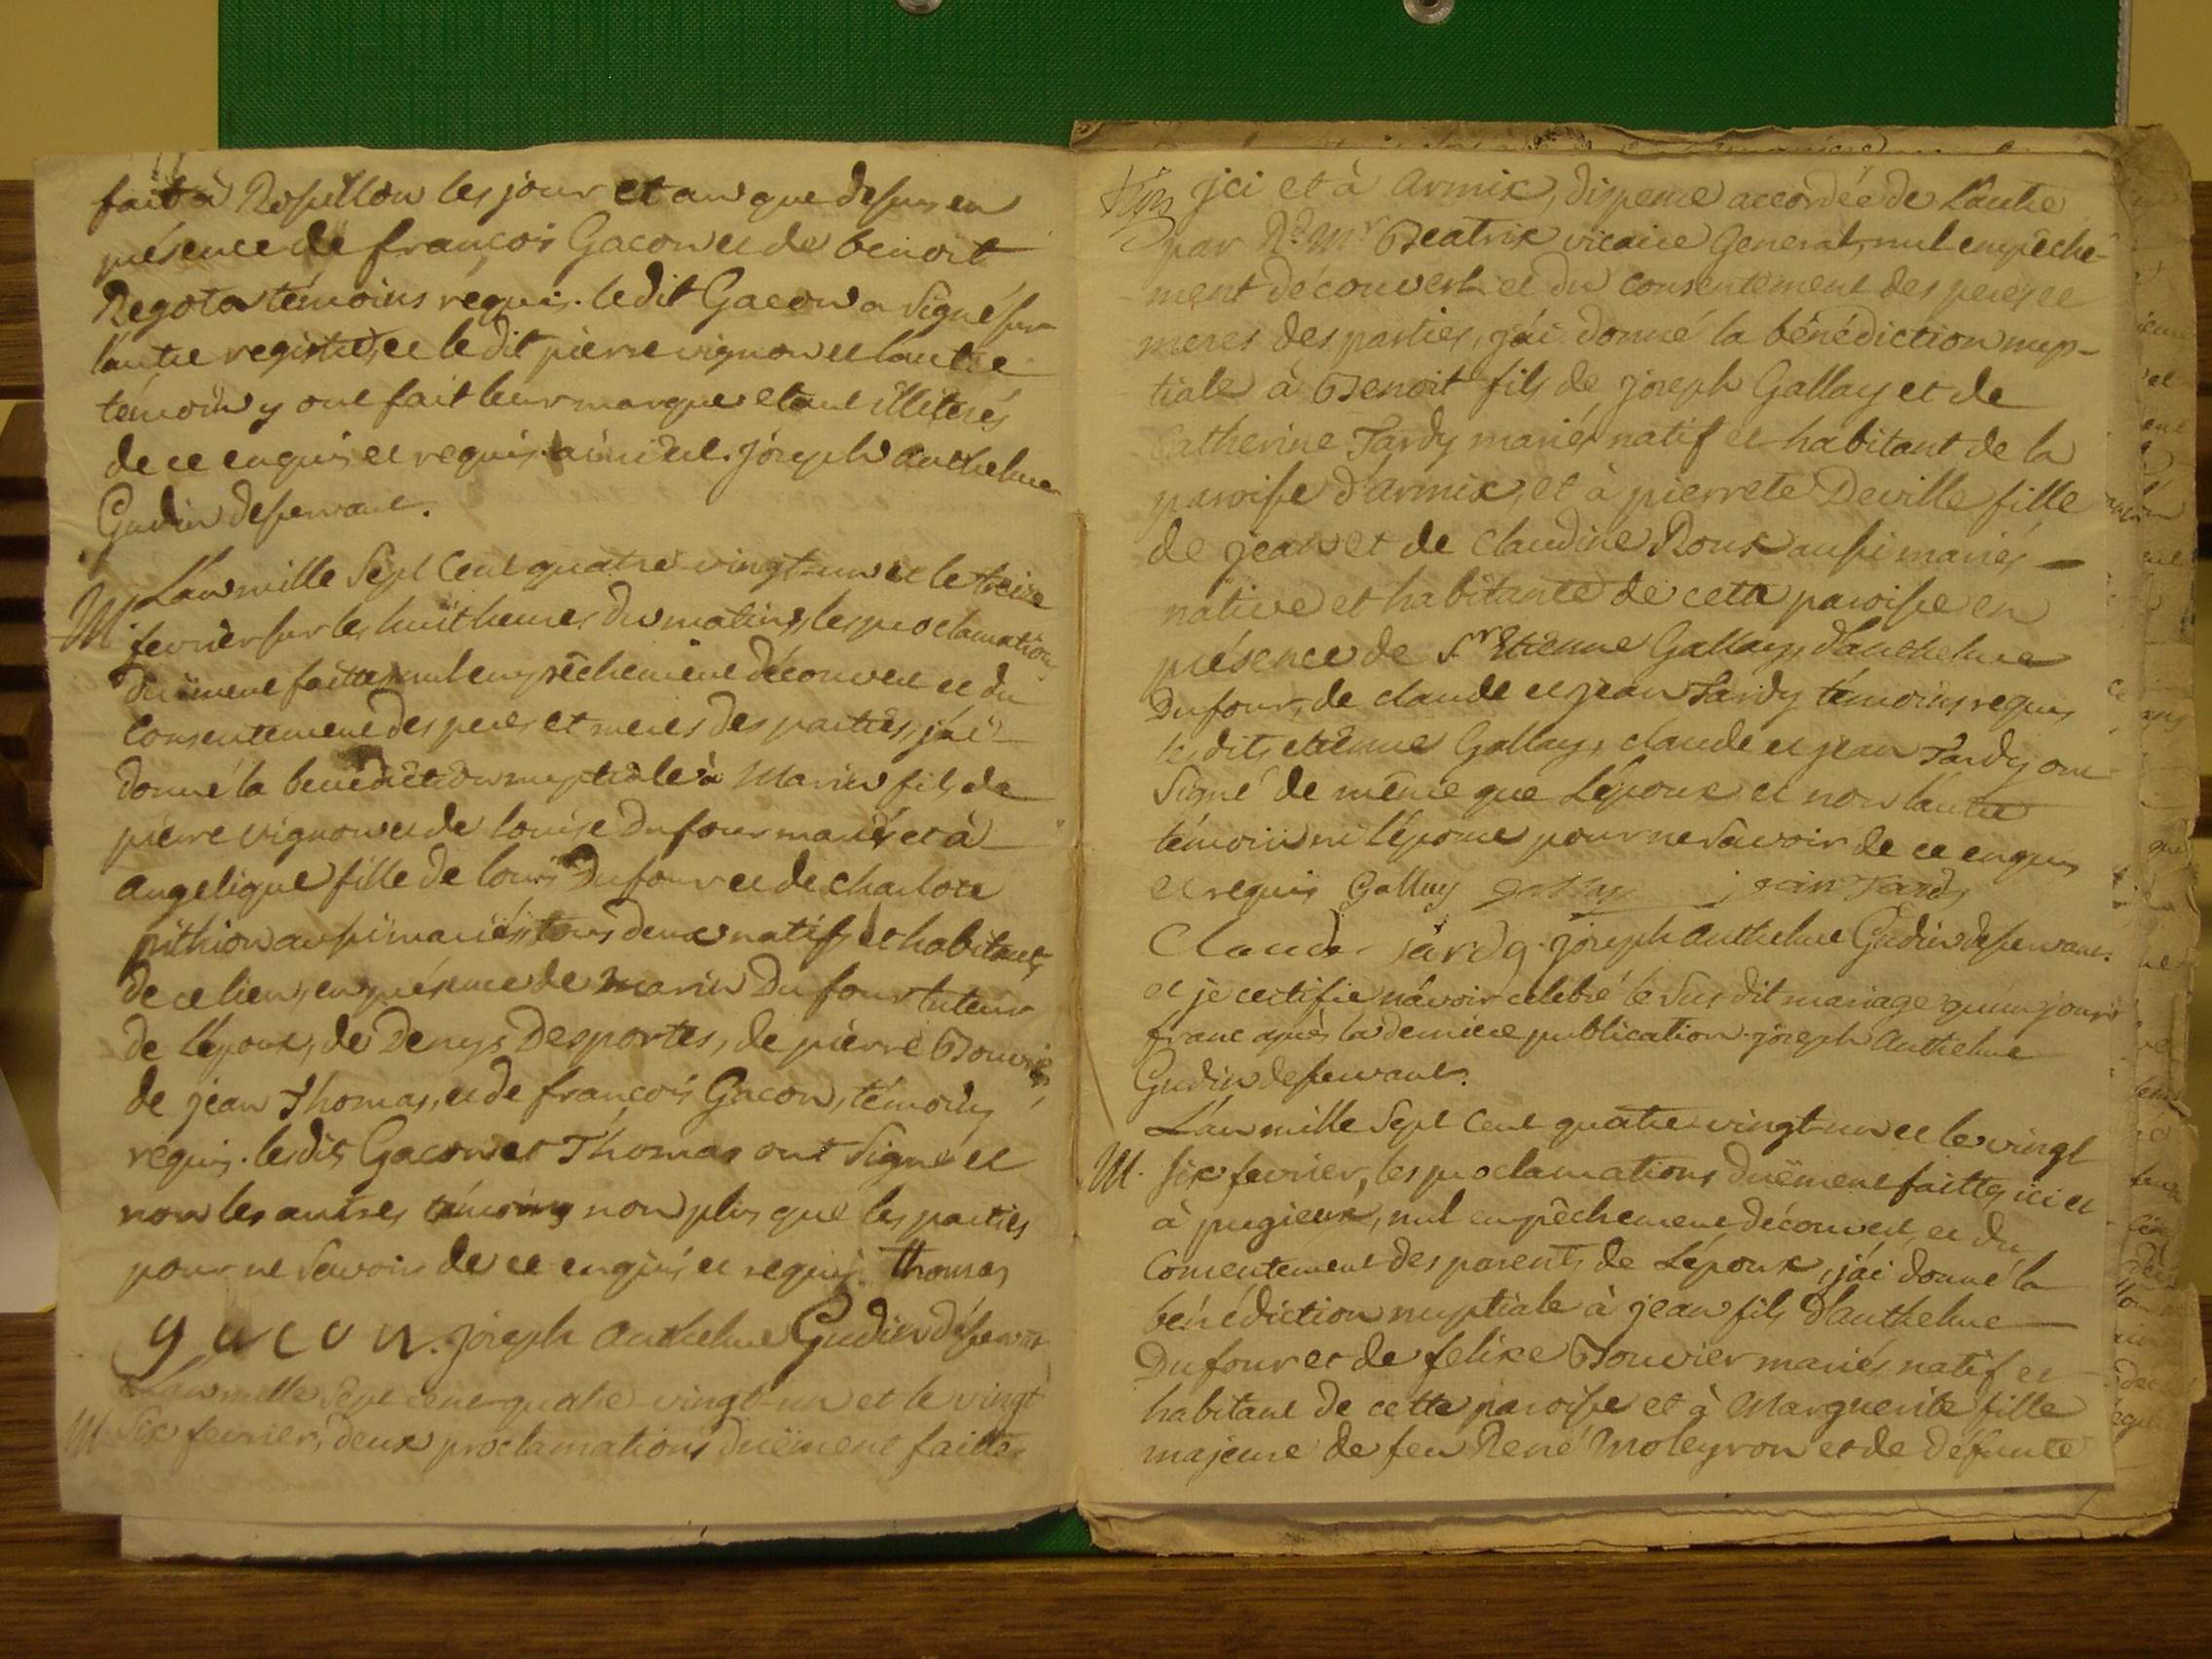 fait à Rossillon les jour et an que dessus en
présence de françois Gacon et de benoit
Regota témoins réquis. ledit Gacon a Signé sur
l'autre registre, et le dit pierre vignon et l'autre
témoin y ont fait leur marque etant illiterés
de ce enquis et requis. ainsi est. joseph Anthelme
Gudin desservant.
L'an mille Sept Cent quatre vingt-un et le treize
M. fevrier sur les huit heures du matin, les proclamations
duëment faittes, nul empêchement découvert et du
Consentement des peres et meres des parties, j'ai
donné la benediction nuptiale à Marin fils de
pierre vignon et de louise Dufour mariés et à
angelique fille de louis Dufour et de charlote
pithion aussi mariés, tous deux natifs et habitants
de ce lieu, en présence de marin Dufour tuteur
de l'époux, de Denys Desportes, de pierre Bouvier,
de jean Thomas, et de françois Gacon, témoins
requis. lesdits Gacon et Thomas ont Signé et
non les autres témoins non plus que les parties
pour ne Savoir de ce enquis et requis. Thomas
gacon. joseph Anthelme Gudin desservant
L'an mille Sept cent quatre-vingt-un et le vingt
M. Six fevrier, deux proclamations duëment faittes
jci et à Armix, dispense accordée de l'autre
par Rd. Mr. Béatrix vicaire General, nul empêche-
ment découvert et du consentement des peres et
meres des parties, j'ai donné la bénédiction nup-
tiale à Benoit fils de joseph Gallay et de
Catherine Tardy mariés natif et habitant de la
paroisse d'armix, et à pierrete Deville fille
de jean et de claudine Roux aussi mariés –
native et habitante de cette paroisse en
présence de Sr Etienne Gallay, d'anthelme
Dufour, de claude et jean Tardy témoins requis
lesdits etienne Gallay, claude et jean Tardy ont
Signé de même que l'époux et non l'autre
témoin ni l'épouse pour ne Savoir de ce enquis
et requis Gallay gallay jean Tardy
Claude Tardy. joseph Anthelme Gudin desservant.
et je certifie n'avoir celebré le Sus dit mariage qu'un jour
franc après la derniere publication. joseph Anthelme
Gudin desservant.
L'an mille Sept Cent quatre-vingt-un et le vingt
M. six fevrier, les proclamations duëment faittes ici et
à pugieux, nul empêchement découvert, et du
Consentement des parents de l'époux, j'ai donné la
bénédiction nuptiale à jean fils d'anthelme
Dufour et de felixe Bouvier mariés natif et
habitant de cette paroisse et à Marguerite fille
majeure de feu René Moleyron et de défunte